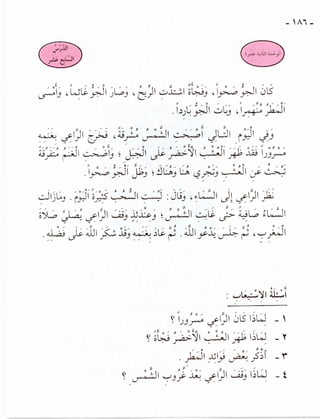 - ١٨٦ -
الوحدة الثانية عشرة
الدَّرْسُ
السَّابِعَ عَشَرَ
كَانَ الجَوُّ صَحْواً، وَفَجْأَةً اشْتَدَّتِ الرِّيحُ، وَصَارَ الْجَوُّ غَائِماً، وَأَمْسَى
الْمَطَرُ مُنْهَمِراً، وَبَاتَ الْجَوُّ بَارِداً.
وَفِي الْيَوْمِ التَّالِي أَصْبَحَتِ الشَّمْسُ مُشْرِقَةً، فَخَرَجَ الرَّاعِي بِغَنَمِهِ
مَسْرُوراً فَقَدْ ظَهَرَ الْعُشْبُ الْأَخْضَرُ عَلَى الْجَبَلِ؛ وَأَضْحَتِ الْغَنَمُ مُتَفَرِّقَةً
تَبْحَثُ عَنِ الْعُشْبِ وَتَجْرِي هُنَا وَهُنَاكَ؛ وَظَلَّ الْجَوُّ صَحْواً.
نَظَرَ الرَّاعِي إِلَى السَّمَاءِ، وَقَالَ: لَيْسَتِ السُّحُبُ كَثِيرَةً الْيَوْمَ. وَمَازَالَتِ
السَّمَاءُ صَافِيَةً حَتَّى غَابَتِ الشَّمْسُ؛ وَعِنْدَئِذٍ وَقَفَ الرَّاعِي يُصَلِّي صَلَاةَ
الْمَغْرِبِ، ثُمَّ جَلَسَ يَدْعُو اللَّهَ. ثُمَّ عَادَ بِغَنَمِهِ وَقَدْ شَكَرَ اللَّهَ عَلَى فَضْلِهِ.
أَسْئِلَةُ الْاسْتِيعَابِ :
١ - لِمَاذَا كَانَ الرَّاعِي مَسْرُوراً ؟
٢ - لِمَاذَا ظَهَرَ الْعُشْبُ الْأَخْضَرُ فَجْأَةً ؟
٣ - أُذْكُرْ بَعْضَ فَوَائِدِ الْمَطَرِ .
٤ - لِمَاذَا وَقَفَ الرَّاعِي بَعْدَ غُرُوبِ الشَّمْسِ ؟